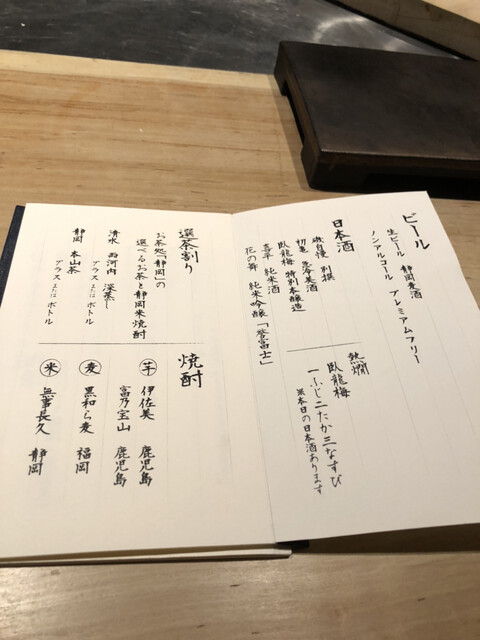 ビール
生ビール 静岡麦酒
ノンアルコール プレミアムフリー
日本酒
磯自慢 別撰
初亀 急冷美酒
臥龍梅 特別本醸造
喜平 純米酒
花の舞 純米吟醸「誉富士」
熱燗
臥龍梅
一ふじ二たか三なすび
※本日の日本酒あります
選茶割り
お茶処「静岡」の
選べるお茶と静岡米焼酎
清水 西河内 深蒸し
グラスまたはボトル
静岡 本山茶
グラスまたはボトル
焼酎
芋 伊佐美 鹿児島
富乃宝山 鹿児島
麦 黒和ら麦 福岡
米 無事長久 静岡